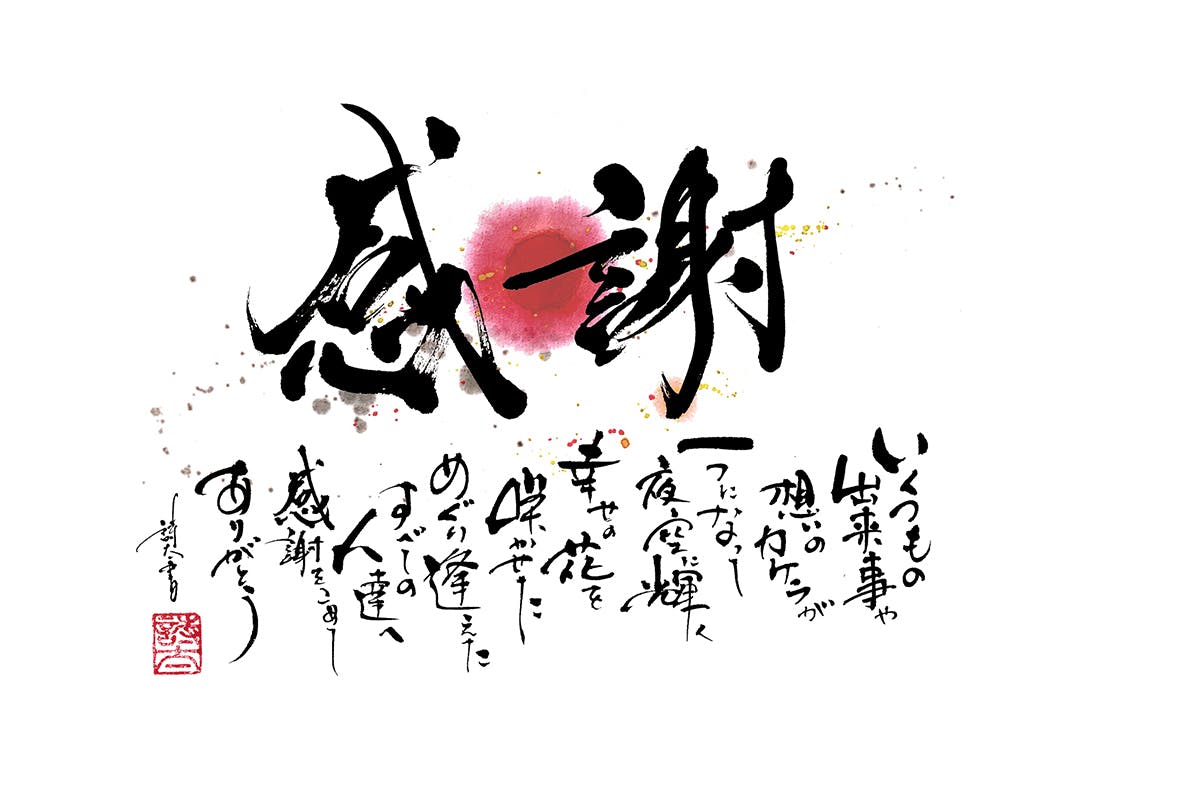 感謝
いくつもの
出来事や
想いのカケラが
一つになって
夜空に輝く
幸せの花を
咲かせた
めぐり逢えた
すべての
人達へ
感謝をこめて
ありがとう